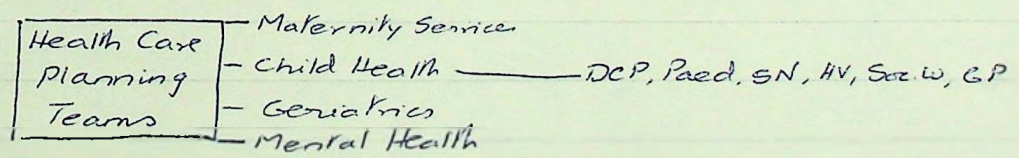 Health Care Planning Teams
- Maternity Service
- Child Health — DCP, Paed, SN, HV, Soc.W, GP
- Geriatrics
- Mental Health